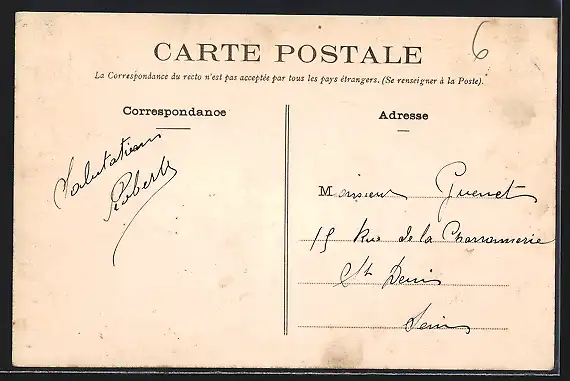 6
CARTE POSTALE
La Correspondance du recto n'est pas acceptée par tous les pays étrangers. (Se renseigner à la Poste).
Correspondance
Adresse
Salutations
Robert
Monsieur Guenet
15 Rue de la Charronnerie
St Denis
Seine